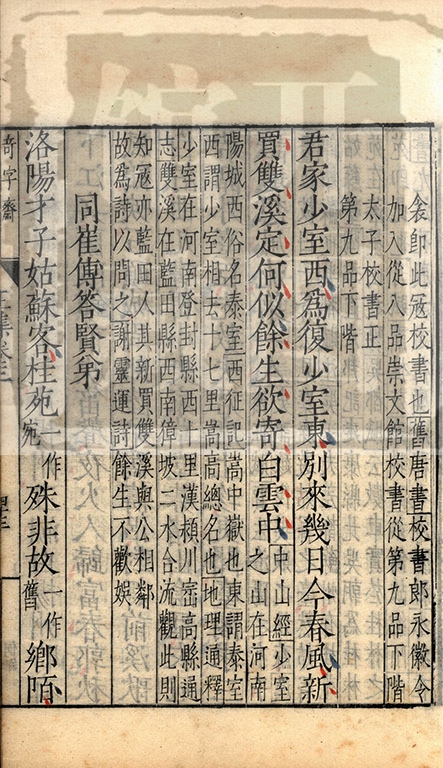 袞即此冦校書也舊唐書校書郎永徽令
加入從八品崇文館校書從第九品下階
太子校書正
第九品下階
君家少室西為復少室東別來幾日今春風新
買雙溪定何似餘生欲寄白雲中
中山經少室
之山在河南
陽城西俗名泰室西征記嵩中嶽也東謂泰室
西謂少室相去十七里嵩高總名也地理通釋
少室在河南登封縣西十里漢潁川崈高縣通
志雙溪在藍田縣西南坡二水合流觀此則
知冦亦藍田人其新買雙溪與公相鄰
故為詩以問之謝靈運詩餘生不歡娛
同崔傅答賢弟
洛陽才子姑蘇客桂苑一作宛殊非故一作舊鄉陌
奇字齋